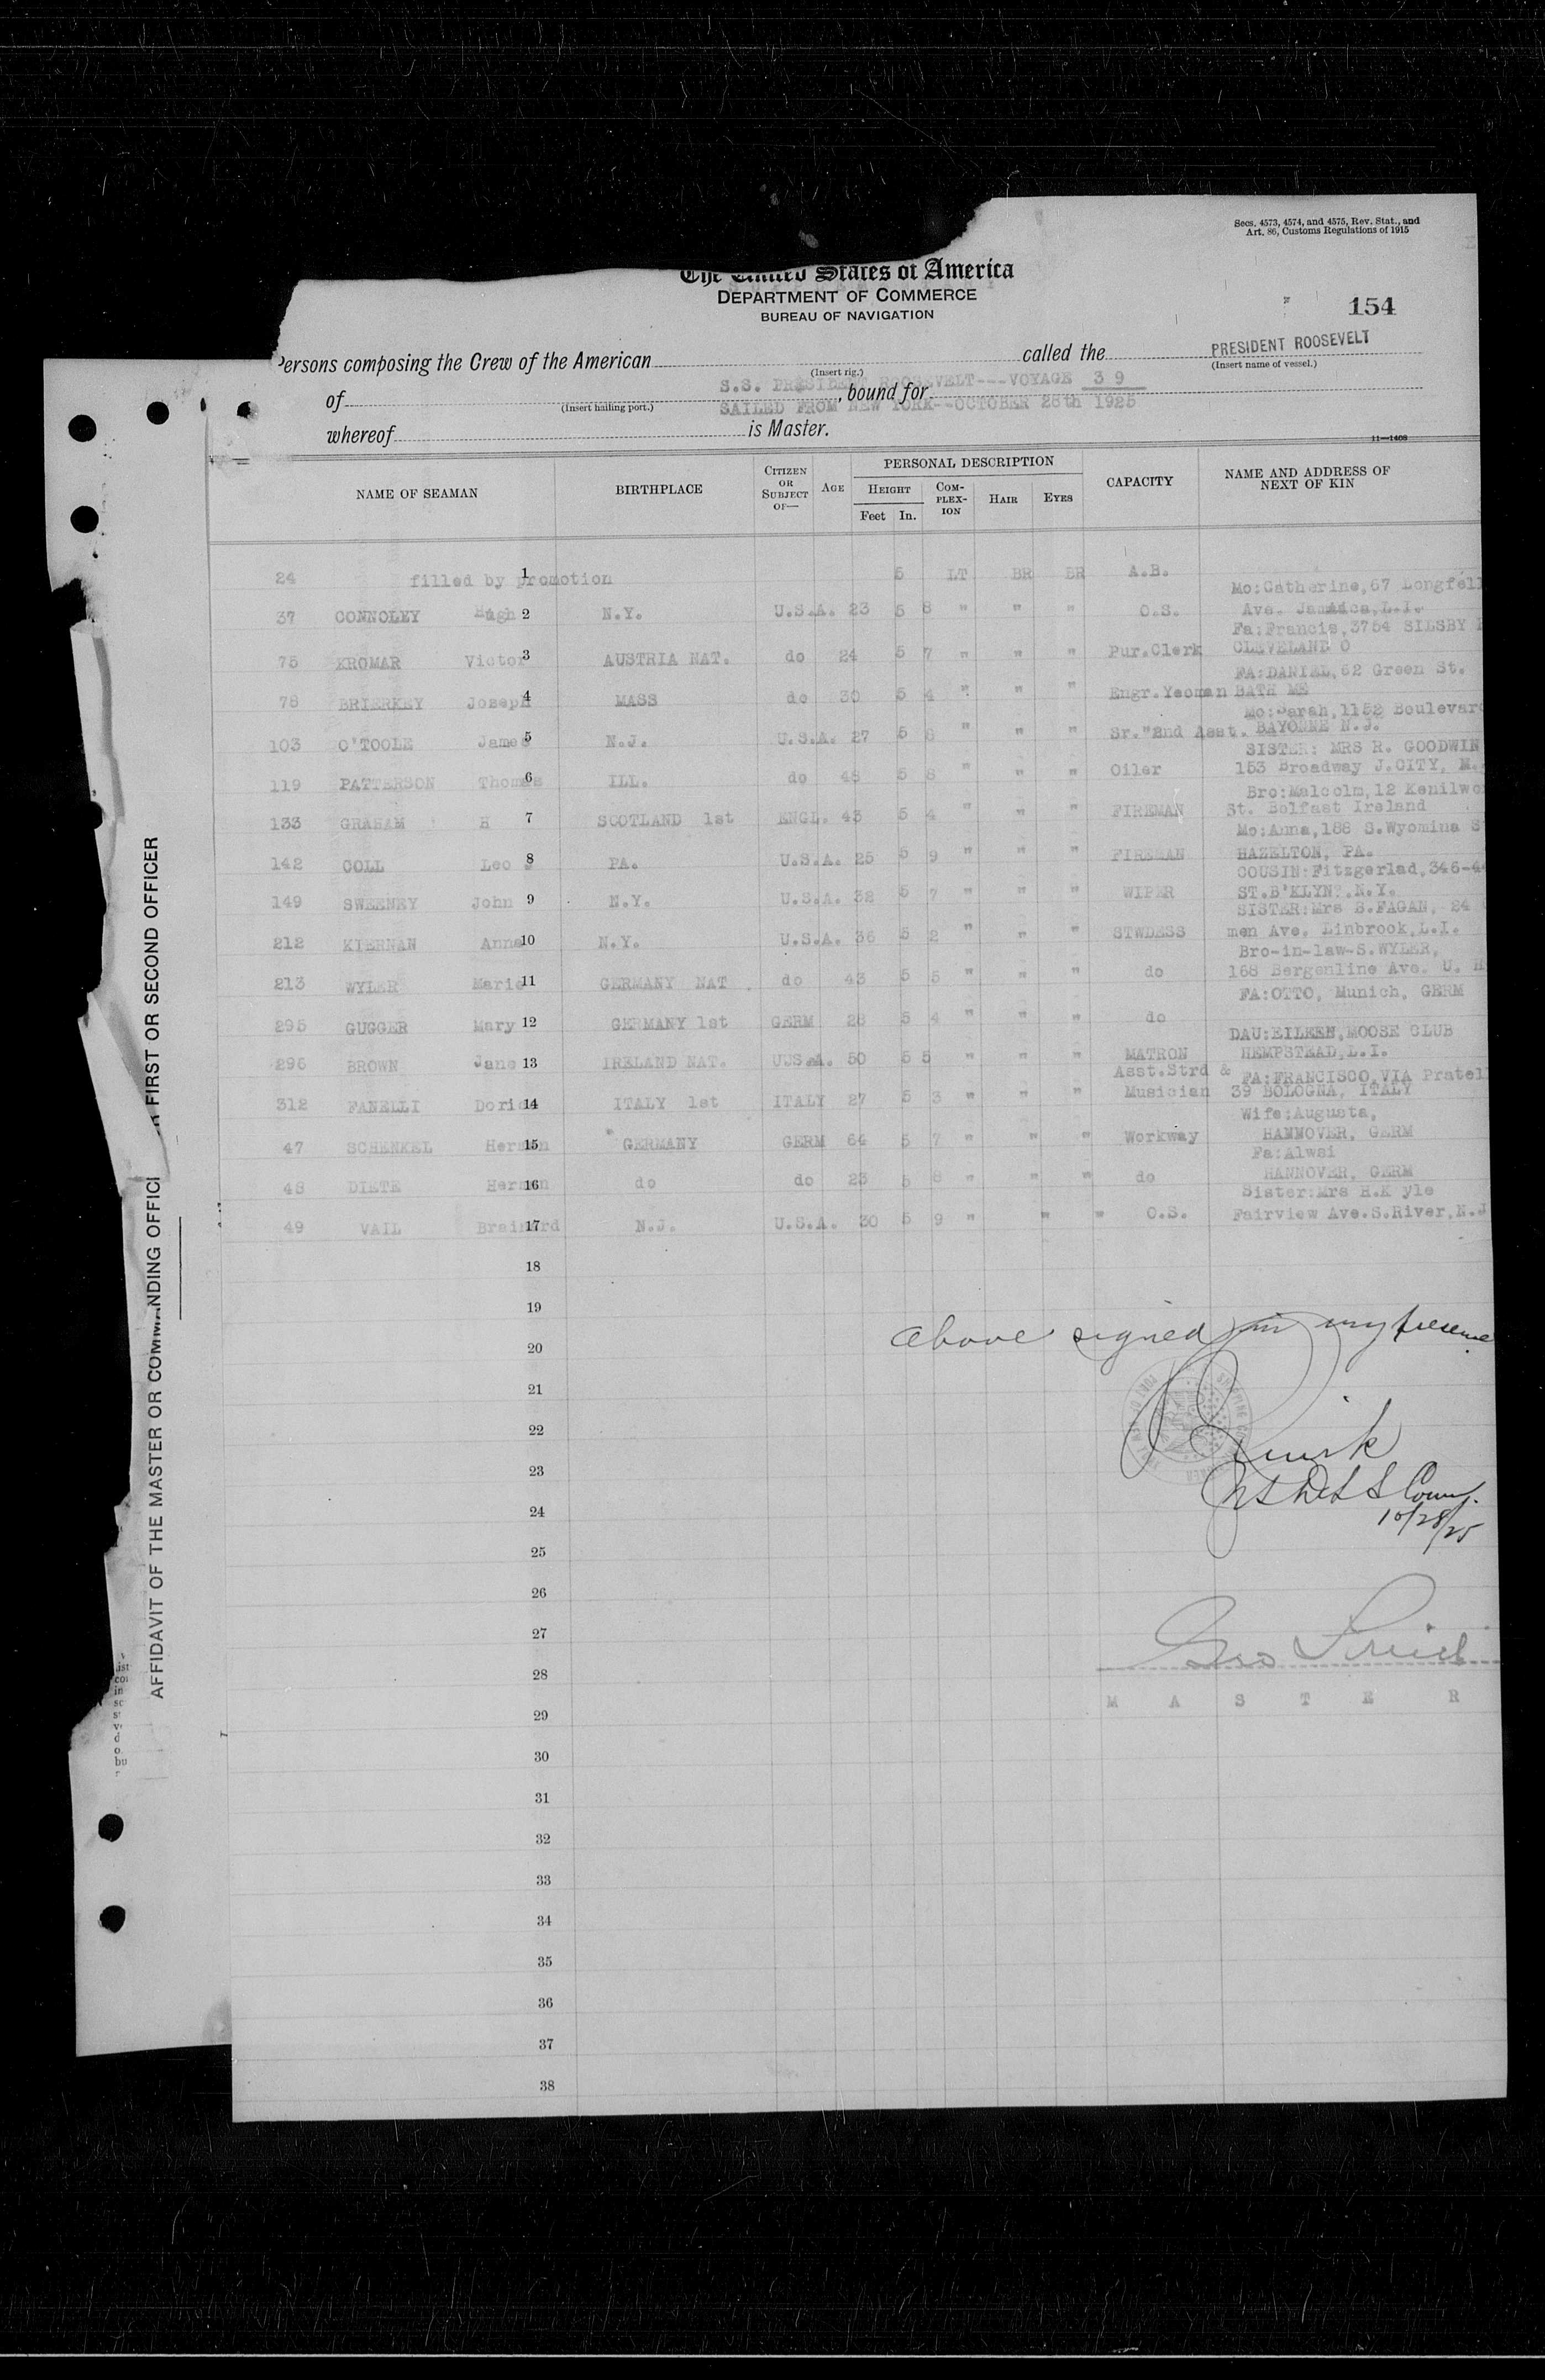 Secs. 4573, 4574, and 4575, Rev. Stat., and
Art. 86, Customs Regulations of 1915
The United States of America
DEPARTMENT OF COMMERCE
BUREAU OF NAVIGATION
154
Persons composing the Crew of the American called the PRESIDENT ROOSEVELT
(Insert rig.) (Insert name of vessel.)
S.S. PRESIDENT ROOSEVELT---VOYAGE 39
of , bound for
(Insert hailing port.) SAILED FROM NEW YORK--OCTOBER 28th 1925
whereof is Master.
11—1408
NAME OF SEAMAN BIRTHPLACE CITIZEN OR SUBJECT OF— AGE PERSONAL DESCRIPTION HEIGHT Feet In. COMPLEXION HAIR EYES CAPACITY NAME AND ADDRESS OF NEXT OF KIN
24 filled by promotion 1 5 LT BR BR A.B.
Mo:Catherine,67 Longfell
37 CONNOLEY Hugh 2 N.Y. U.S.A. 23 5 8 " " " O.S. Ave. Jamaica,L.I.
Fa:Francis,3754 SILSBY
75 KROMAR Victor 3 AUSTRIA NAT. do 24 5 7 " " " Pur.Clerk CLEVELAND O
FA:DANIEL,52 Green St.
78 BRIERKEY Joseph 4 MASS do 30 5 4 " " " Engr.Yeoman BATH ME
Mo:Sarah,1152 Boulevard
103 O'TOOLE James 5 N.J. U.S.A. 27 5 8 " " " Sr."2nd Asst. BAYONNE N.J.
SISTER: MRS R. GOODWIN
119 PATTERSON Thomas 6 ILL. do 48 5 8 " " " Oiler 153 Broadway J.CITY, N.
Bro:Malcolm,12 Kenilwo
133 GRAHAM H 7 SCOTLAND 1st ENGL. 43 5 4 " " " FIREMAN St. Belfast Ireland
Mo:Anna,188 S.Wyomina S
142 COLL Leo 8 PA. U.S.A. 25 5 9 " " " FIREMAN HAZELTON, PA.
COUSIN:Fitzgerlad,346-4
149 SWEENEY John 9 N.Y. U.S.A. 32 5 7 " " " WIPER ST.B'KLYN?.N.Y.
SISTER:Mrs B.FAGAN, 24
212 KIERNAN Anna 10 N.Y. U.S.A. 36 5 2 " " " STWDESS men Ave. Linbrook,L.I.
Bro-in-law-S.WYLER,
213 WYLER Marie 11 GERMANY NAT. do 43 5 5 " " " do 168 Bergenline Ave. U. H
FA:OTTO, Munich, GERM
295 GUGGER Mary 12 GERMANY 1st GERM 28 5 4 " " " do
DAU:EILEEN,MOOSE CLUB
296 BROWN Jane 13 IRELAND NAT. UUS.A. 50 5 5 " " " MATRON HEMPSTEAD,L.I.
Asst.Strd & FA:FRANCISCO,VIA Pratel
312 FANELLI Doris 14 ITALY 1st ITALY 27 5 3 " " " Musician 39 BOLOGNA, ITALY
Wife:Augusta,
47 SCHENKEL Herman 15 GERMANY GERM 64 5 7 " " " Workway HANNOVER, GERM
Fa:Alwsi
48 DIETE Herman 16 do do 23 5 8 " " " do HANNOVER, GERM
Sister:Mrs H.K yle
49 VAIL Brainard 17 N.J. U.S.A. 30 5 9 " " " O.S. Fairview Ave.S.River,N.J
18
19
above signed in my presence
20
21
22
Quirk
23
24
10/28/25
25
26
27
Geo
28
M A S T E R
29
30
31
32
33
34
35
36
37
38
AFFIDAVIT OF THE MASTER OR COMMANDING OFFICE
FIRST OR SECOND OFFICER